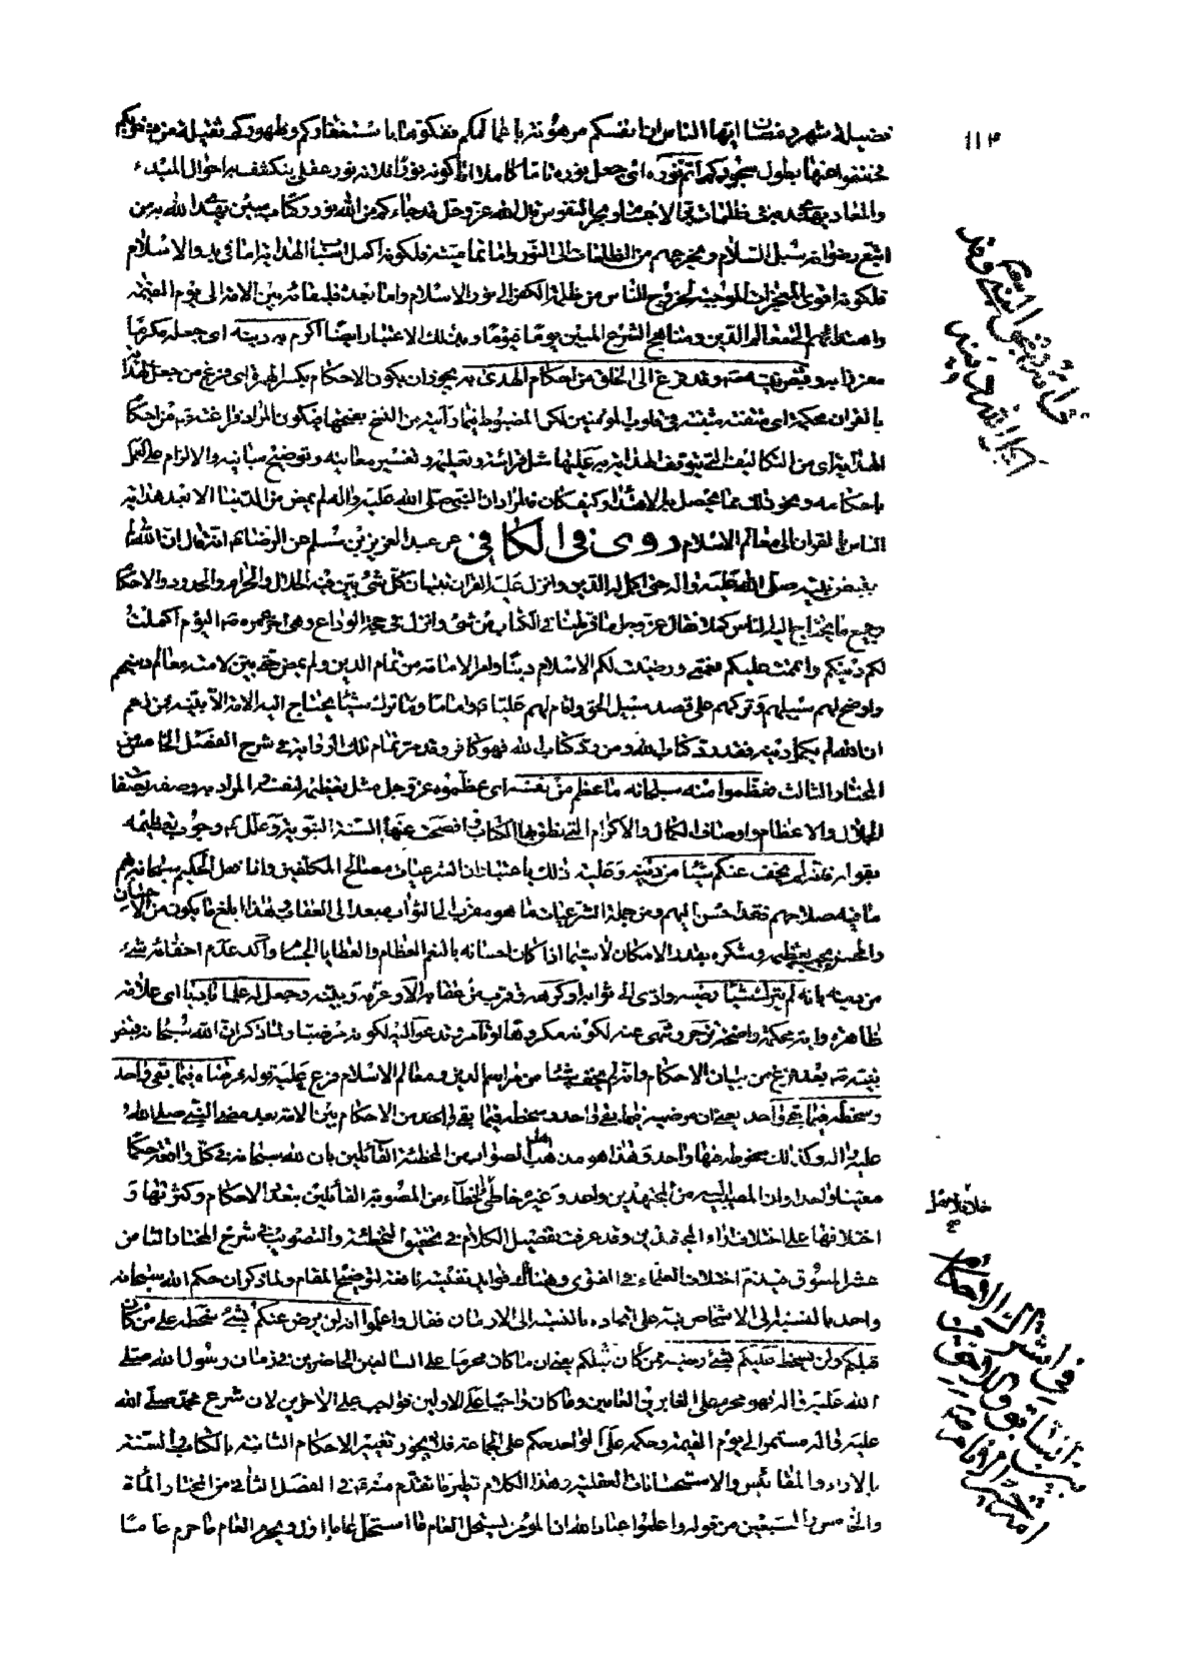 فضيلة شهر رمضان ايها الناس ان انفسكم مرهونة باعمالكم ففكوها باستغفاركم وظهوركم ثقيلة من ذنوبكم
١١٣
فخففوا عنها بطول سجودكم اتم نوره اى جعل نوره تاما كاملا اما كونه نورا فلانه نور عقلى ينكشف به احوال المبدء
والمعاد يهتدى به فى ظلمات الاجسام النفوس قال الله عز وجل قد جاءكم من الله نور وكتاب مبين يهدى الله به من
اتبع رضوانه سبل السلام ويخرجهم من الظلمات الى النور واما تماميته فلكونه اكمل اسباب الهداية اما فى بدو الاسلام
فلكونه اقوى المعجزات الموجبة لخروج الناس من ظلمة الكفر الى نور الاسلام واما بعده فلبقائه بين الامة الى يوم القيمة
واهتدائهم الى معالم الدين ومناهج الشرع المبين يوما فيوما وبتلك الاعتبار ايضا اكرم به دينه اى جعله مكرما
معززا به وقبض نبيه ص وقد فرغ الى الخلق من احكام الهدى به يجوز ان يكون الاحكام بكسر الهمزة اى فرغ من جعل الهداية
بالقران محكمة اى متقنة مثبتة فى قلوب المؤمنين لكن المضبوط فيما رايته من النسخ بفتحها فيكون المراد فراغته من احكام
الهداية اى من التكاليف التى يتوقف الهداية به عليها مثل قرائته وتعليمه وتفسير معانيه وتوضيح مبانيه والالزام على العمل
باحكامه ونحو ذلك مما يحصل به الاهتداء وكيف كان فالمراد ان النبى صلى الله عليه واله لم يمض من الدنيا الا بعد هداية
الناس بالقران الى معالم الاسلام روى فى الكافى عن عبد العزيز بن مسلم عن الرضا انه قال ان الله لم
يقبض نبيه صلى الله عليه واله حتى اكمل له الدين وانزل عليه القران تبيان كل شئ بين فيه الحلال والحرام والحدود والاحكام
وجميع ما يحتاج اليه الناس كملا فقال عز وجل ما فرطنا فى الكتاب من شئ وانزل فى حجة الوداع وهى اخر عمره ص اليوم اكملت
لكم دينكم واتممت عليكم نعمتى ورضيت لكم الاسلام دينا وامر الامامة من تمام الدين ولم يمض حتى بين لامته معالم دينهم
واوضح لهم سبيلهم وتركهم على قصد سبيل الحق واقام لهم عليا اماما وما ترك شيئا يحتاج اليه الامة الا بينه فمن زعم
ان الله لم يكمل دينه فقد رد كتاب الله ومن رد كتاب الله فهو كافر وقد مر تمام تلك الرواية فى شرح الفصل الخامس من
المختار الثالث فعظموا منه سبحانه ما عظم من نفسه اى عظموه عز وجل مثل تعظيمه لنفسه والمراد به وصفه بصفات
الجلال والاعظام واوصاف الكمال والاكرام التى نطق بها الكتاب وافصحت عنها السنة النبوية وعلل وجوب تعظيمه
بقوله فانه لم يخف عنكم شيئا من دينه وعلية ذلك باعتبار ان الشرعيات مصالح المكلفين واذا فعل الحكيم سبحانه بهم
ما فيه صلاحهم فقد احسن اليهم ومن جملة الشرعيات ما هو مقرب الى الثواب مبعد الى العقاب وهذا ابلغ ما يكون من الاحسان
والمحسن يجب تعظيمه وشكره بقدر الامكان لا سيما اذا كان احسانه بالنعم العظام والعطايا الجسام واكد عدم اخفائه شئ
من دينه بانه لم يترك شيئا رضيه وادى الى ثوابه او كرهه وقرب من عقابه الا وعرفه وبينه وجعل له علما باديا اى علامة
ظاهرة واية محكمة واضحة تزجر وتنهى عنه لكونه مكروها او تامر وتدعو اليه لكونه مرضيا ولما ذكر ان الله سبحانه قبض
نبيه ص بعد الفراغ من بيان الاحكام وانه لم يخف شيئا من مراسم الدين ومعالم الاسلام فرع عليه قوله فرضاه فيما بقى واحد
وسخطه فيما بقى واحد يعنى ان مرضيه فيما بقى واحد ومسخطه فيما بقى واحد من الاحكام بين الامة بعد مضى النبى صلى الله
عليه واله وكذلك مسخوطه فيها واحد وهذا هو مذهب اهل الصواب من المخطئة القائلين بان لله سبحانه فى كل واقعة حكما
معينا واحدا وان المصيب اليه من المجتهدين واحد وغيره خاطئ الخطاء من المصوبة القائلين بتعدد الاحكام وكثرتها و
خلافا لاهل
اختلافها على اختلاف اراء المجتهدين وقد عرفت تفصيل الكلام فى تحقيق التخطئة والتصويب فى شرح المختار الثامن
عشر المسوق فى ذم اختلاف العلماء فى الفتوى وهناك فوايد نفيسة نافعة لتوضيح المقام ولما ذكر ان حكم الله سبحانه
واحد بالنسبة الى الاشخاص نبه على اتحاده بالنسبة الى الازمان فقال واعلموا انه لن يرض عنكم بشئ سخطه على من كان
قبلكم ولن يسخط عليكم بشئ رضيه ممن كان قبلكم يعنى ان ما كان محرما على السالفين الحاضرين فى زمان رسول الله صلى
الله عليه واله فهو محرم على الغابرين القامين وما كان واجبا على الاولين فواجب على الاخرين لان شرع محمد صلى الله
عليه واله مستمر الى يوم القيمة وحكمه على الواحد حكم على الجماعة فلا يجوز تغيير الاحكام الثابتة بالكتاب والسنة
بالاراء والمقائيس والاستحسانات العقلية وهذا الكلام نظير ما تقدم منه فى الفصل الثانى من المختار المائة
والخامس والسبعين من قوله واعلموا عباد الله ان المؤمن يستحل العام ما استحل عاما اول ويحرم العام ما حرم عاما